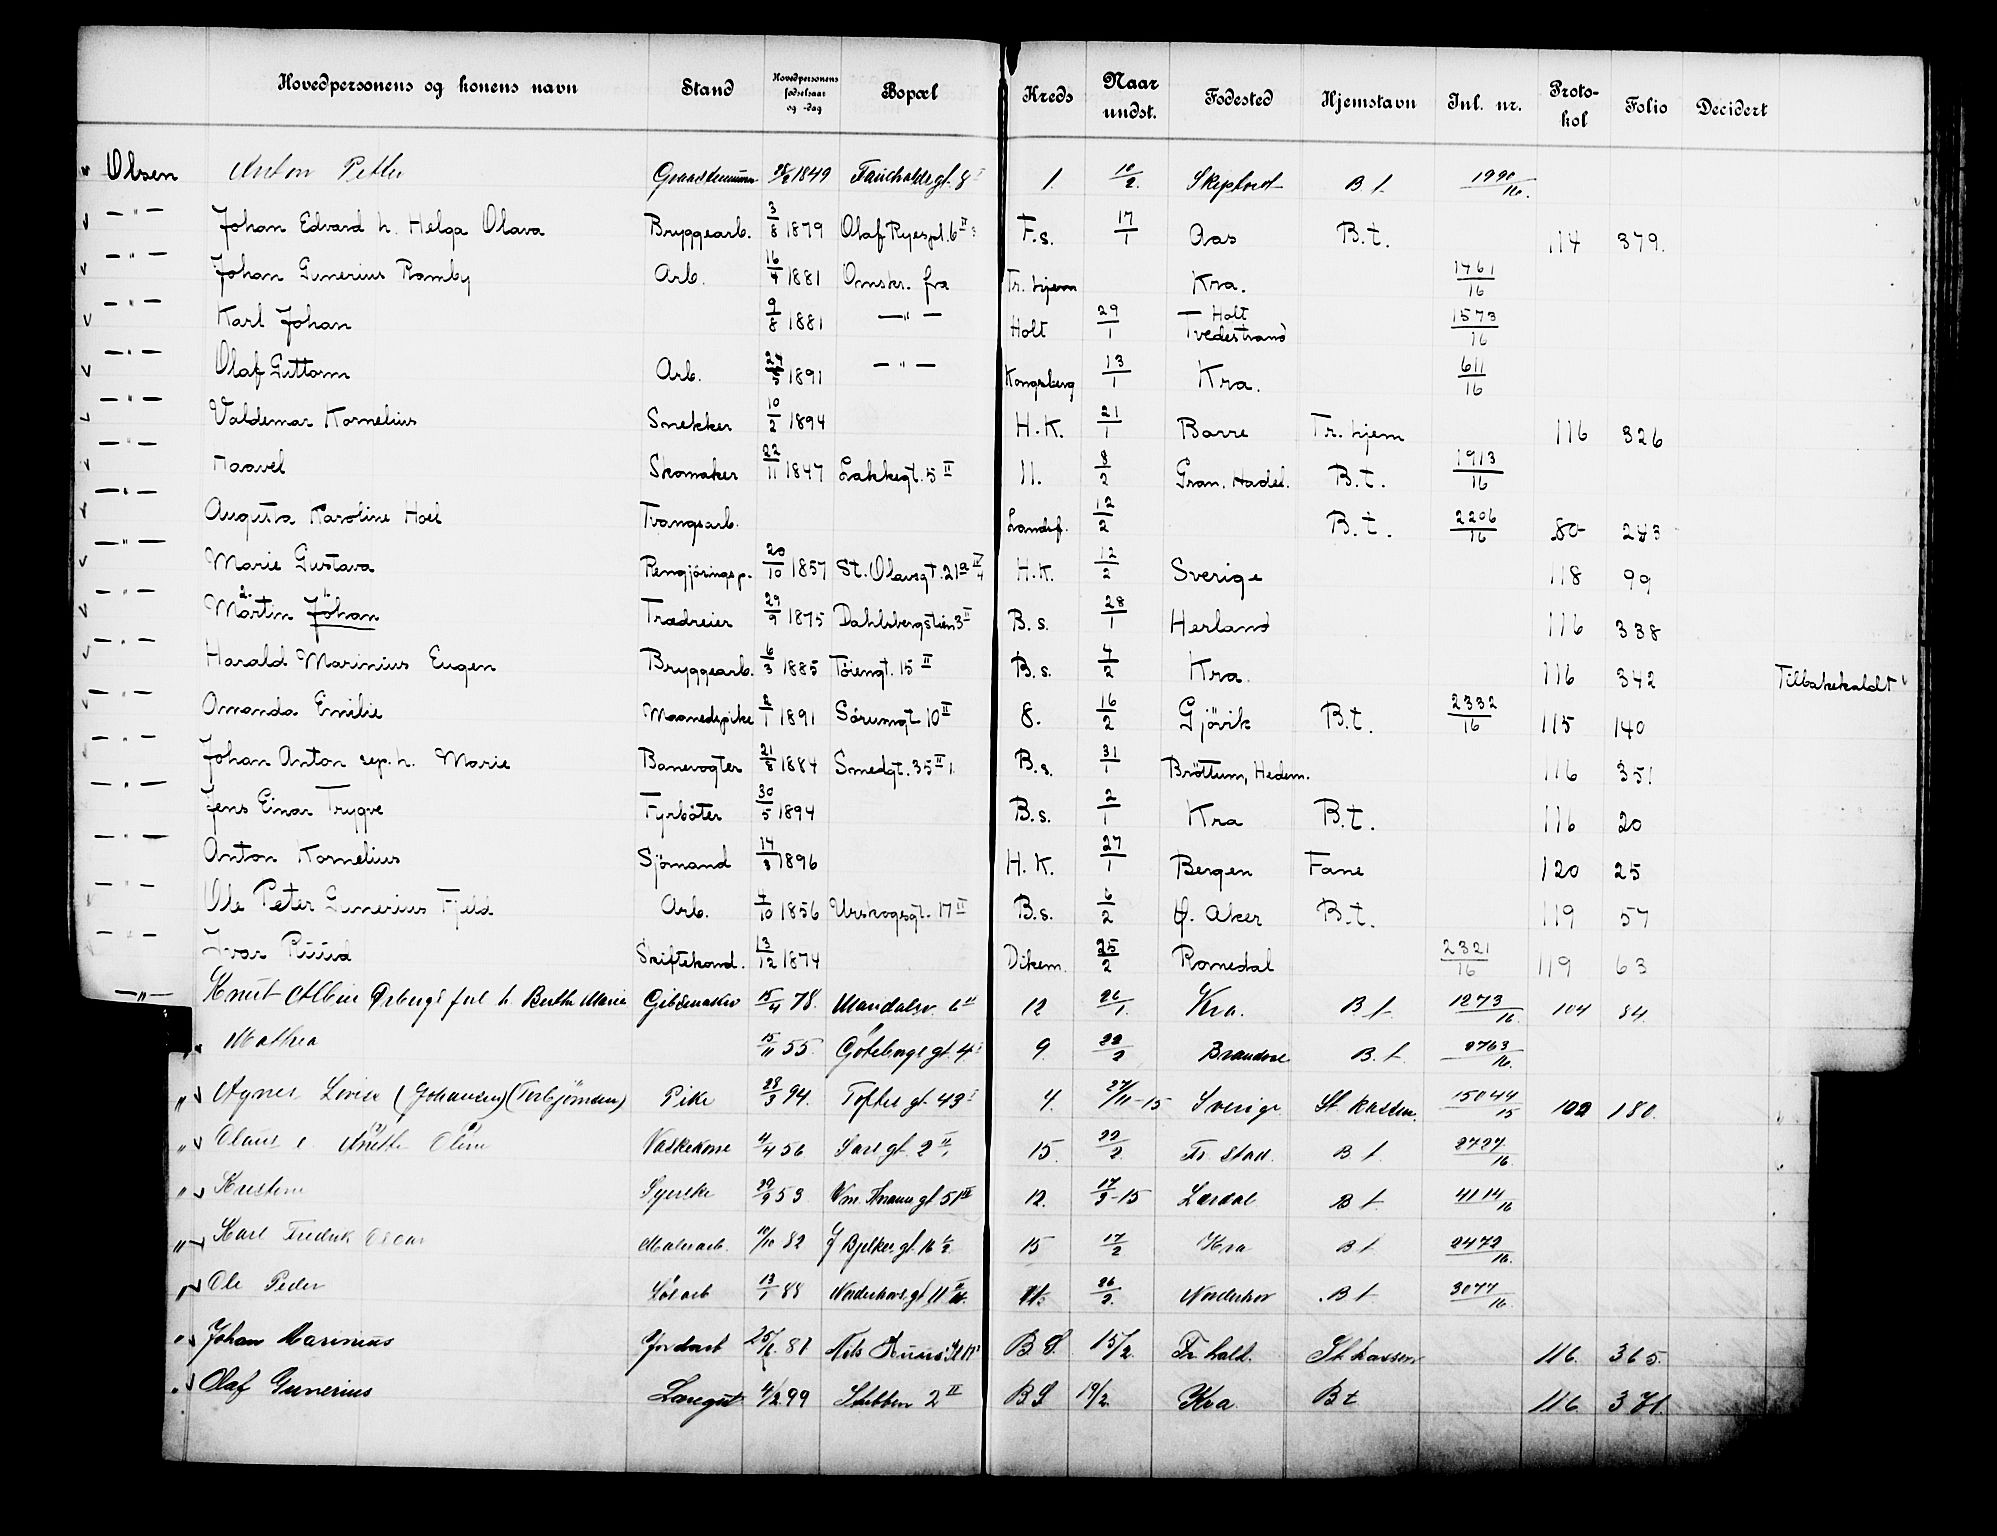 Hovedpersonens og konens navn Stand Hovedpersonens fødselsaar og -dag Bopæl Kreds Naar undst. Fødested Hjemstavn Inl. nr. Proto-kol Folio Decidert
Olsen Anton Petter 1849 8 1. 10/2. B t. 1990/16.
— " — Johan Edvard h. Helga Olava Bryggearb. 3/8 1879 Olaf Ryespl. 6 II F.s. 17/1 Aas B.t. 114 379.
— " — Johan Gunerius Ramby Arb. 16/4 1881 Omskr. fra Tr. hjem Kra. 1761/16
— " — Karl Johan 9/8 1881 — " — Holt 29/1 Holt Tvedestrand 1573/16
— " — Olaf Guttorm Arb. 27/5 1891 — " — Kongsberg 13/1 Kra. 611/16
— " — Valdemar Kornelius Snekker 10/2 1894 H.K. 21/1 Borre Tr. hjem 116 326
— " — Taavel Skomaker 22/11 1847 Lakkegt. 5 II 11. 8/2 Gran, Hadel. B.t. 1913/16
— " — Augusta Karoline Hoel Tvangsarb. Landsf. 12/2 B.t. 2206/16 80 243
— " — Marie Gustava Rengjøringsp. 20/10 1857 St. Olavsgt. 21a IV 4 H.K. 12/2 Sverige 118 99
— " — Martin Johan Trædreier 29/9 1875 Dahlsbergstien 3 II B.s. 28/1 Herland 116 338
— " — Harald Marinius Eugen Bryggearb. 6/3 1885 Tøiengt. 15 II B.s. 4/2 Kra. 116 342 Tilbakekaldt
— " — Amanda Emilie Maanedspike 2/1 1891 Sørumgt. 10 II 8. 16/2 Gjøvik B.t. 2332/16 115 140
— " — Johan Anton sep. h. Marie Banevogter 21/8 1884 Smedgt. 35 II 1 B.s. 31/1 Brøttum, Hedem. 116 351
— " — Jens Einar Trygve Fyrbøter 30/5 1894 B.s. 2/1 Kra B.t. 116 20
— " — Anton Kornelius Sjømand 14/3 1896 H.K. 27/1 Bergen Fane 120 25
— " — Ole Peter Gunerius Fjeld Arb. 4/10 1856 Urskogsgt. 17 II B.s. 6/2 Ø. Aker B.t. 119 57
— " — Ivar Ruud Skiftekond. 13/12 1874 Dikem. 25/2 Romedal 2321/16 119 63
— " — Knut h. Berthe Marie 15/4 78. Mandalsv. 6 II 12 26/1. Kra. B t. 1273/16. 104 84.
Mathea 15/11 55. Göteborgs gt. 4 9. 22/2 B t. 2763/16.
" Agnes Lovise (Johansen) (Torbjørnsen) Pike 28/3 94. Toftes gt. 43 I 4. 27/11-15 Sverige St. kassen. 15044/15 102 180.
" Olaus e. Anethe Oline Vaskekone 4/4 56 Sars gt. 2 II 15. 22/2. Fr. stad. B t. 2727/16.
" Kristine Syerske 29/9 53. gt. 51 III 12. 17/3-15 Lærdal B t. 4114/16
" Karl Fredrik Oscar Malerarb. 10/10 82 J. Bjelkes gt. 16 15 17/2 Kra B t. 2472/16.
" Ole Peder Løsarb 13/1 88 Norderhovs gt. 11 26/2. Norderhov B t. 3077/16.
" Johan Marinius Jordarb 25/6. 81 Nils Huus' B.S. 15/2 Fr. hald. St. kassen 116. 365.
" Olaf Gunerius Læregut 4/2 99 Stubben 2 II BS 19/2. Kra. Bt 116. 371.